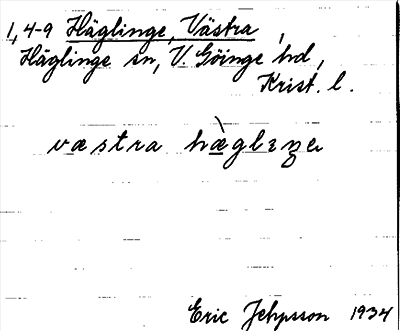 1,4-9 Häglinge, Västra,
Häglinge sn, V. Göinge hd,
Krist. l.
væstra hæ̀glɪŋe
Eric Jehpsson 1934